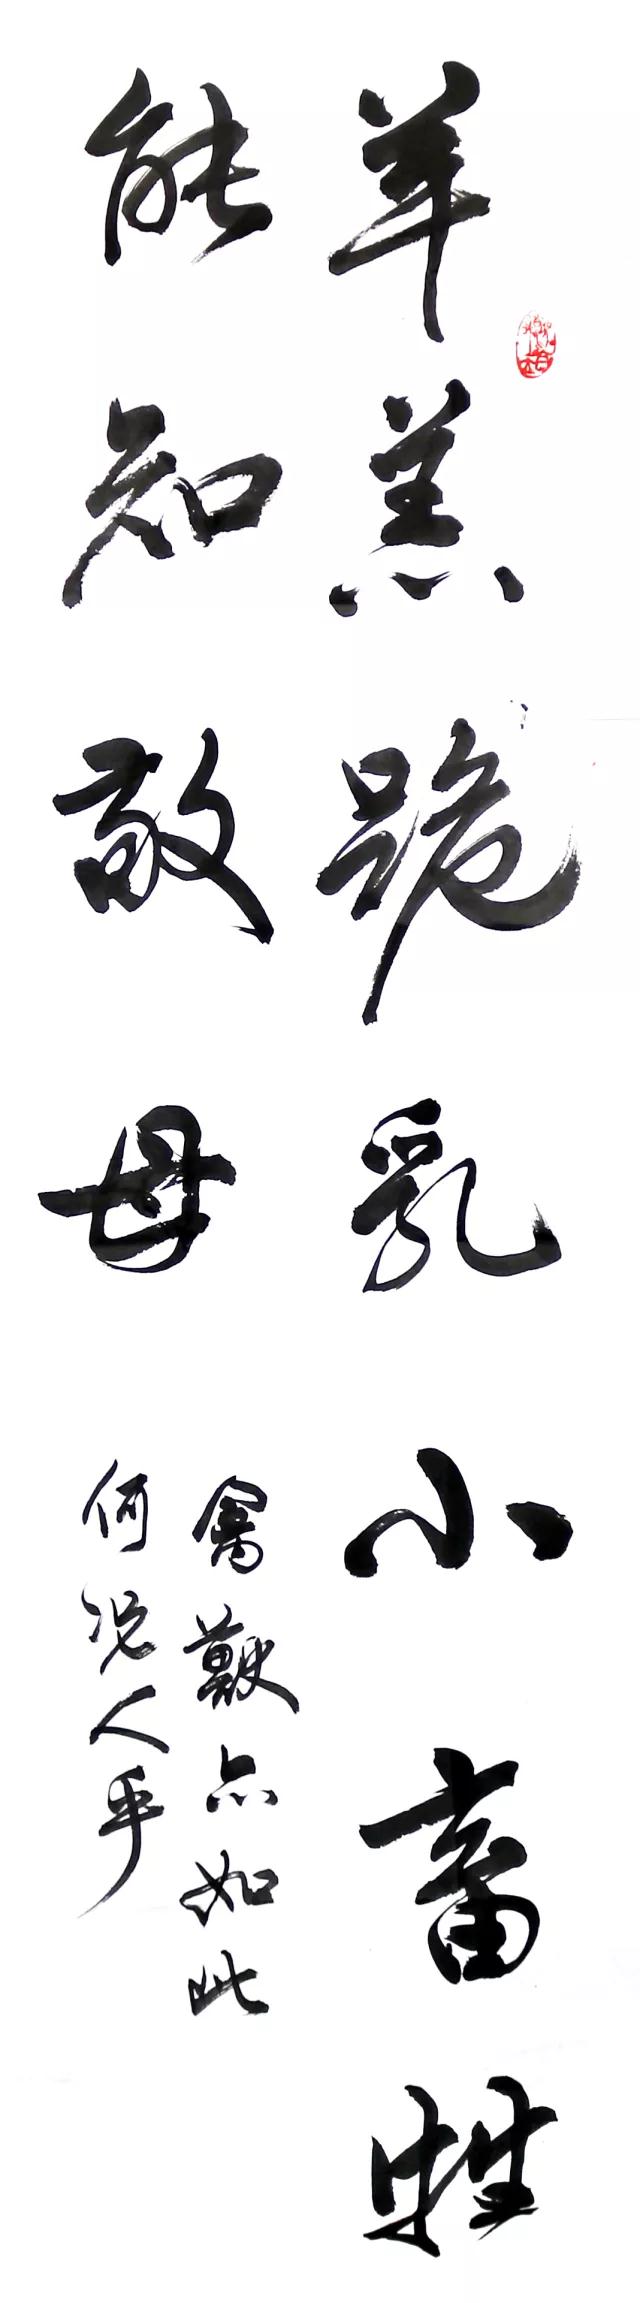 羊羔跪乳小畜牲
能知敬母
禽兽亦如此
何况人乎